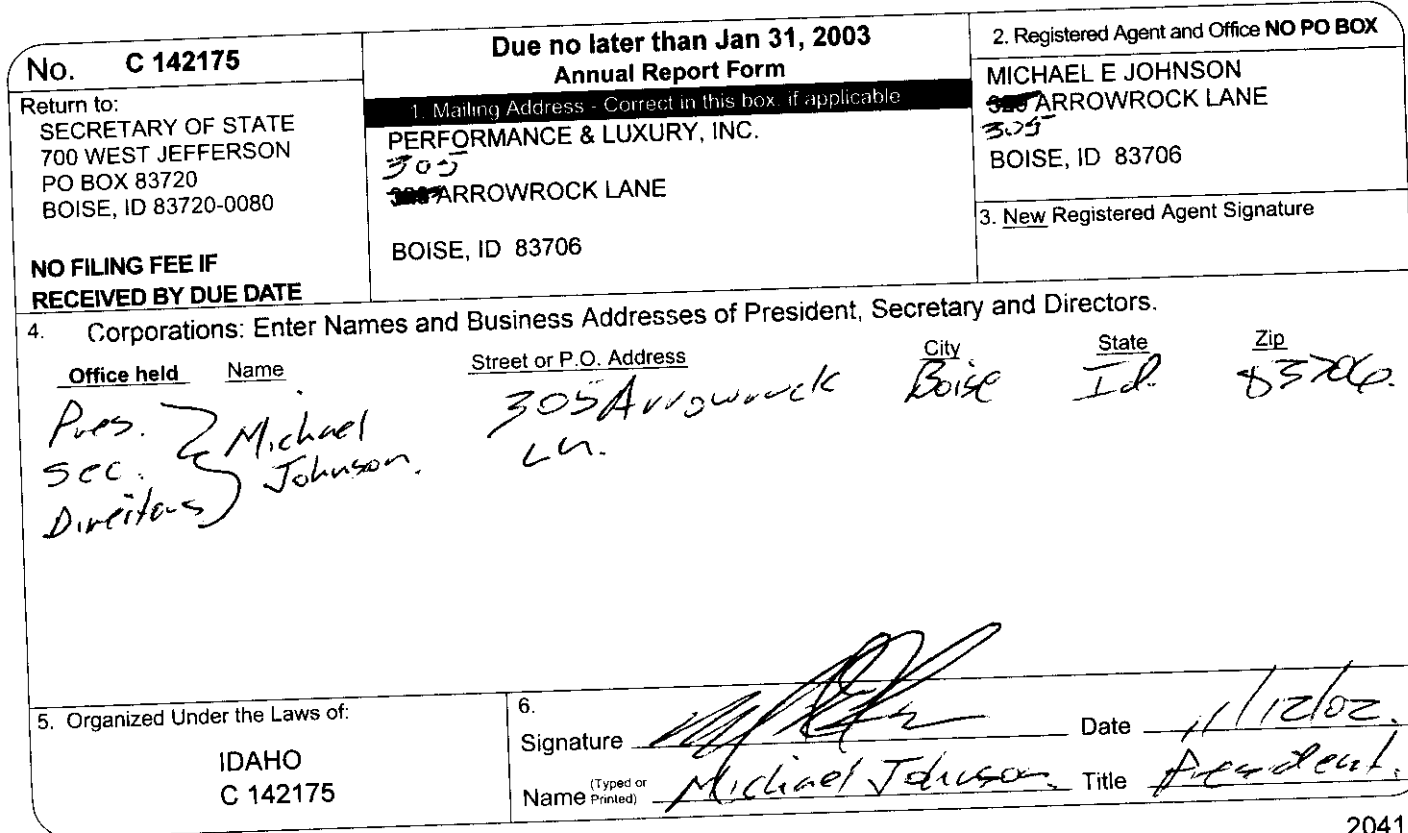 No. C 142175
Return to:
SECRETARY OF STATE
700 WEST JEFFERSON
PO BOX 83720
BOISE, ID 83720-0080
NO FILING FEE IF
RECEIVED BY DUE DATE
Due no later than Jan 31, 2003
Annual Report Form
1. Mailing Address - Correct in this box, if applicable
PERFORMANCE & LUXURY, INC.
305
ARROWROCK LANE
BOISE, ID 83706
2. Registered Agent and Office NO PO BOX
MICHAEL E JOHNSON
ARROWROCK LANE
305
BOISE, ID 83706
3. New Registered Agent Signature
4. Corporations: Enter Names and Business Addresses of President, Secretary and Directors.
Office held Name Street or P.O. Address City State Zip
Pres. Michael 305 Arrowrock Boise Id. 83706.
Sec. Johnson. Ln.
Directors
5. Organized Under the Laws of:
IDAHO
C 142175
6.
Signature Date 11/12/02.
Name (Typed or Printed) Michael Johnson Title President.
2041